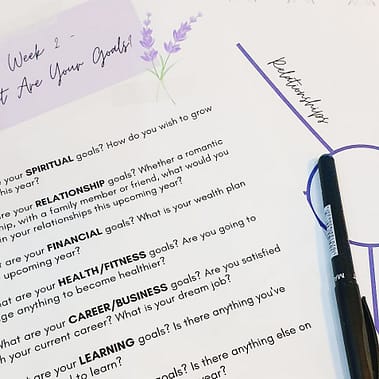 Week 2 -
t Are Your Goals?
your SPIRITUAL goals? How do you wish to grow
his year?
re your RELATIONSHIP goals? Whether a romantic
hip, with a family member or friend, what would you
in your relationships this upcoming year?
are your FINANCIAL goals? What is your wealth plan
upcoming year?
hat are your HEALTH/FITNESS goals? Are you going to
ge anything to become healthier?
What are your CAREER/BUSINESS goals? Are you satisfied
h your current career? What is your dream job?
are your LEARNING goals? Is there anything you've
d to learn?
goals? Is there anything else on
year?
Relationships